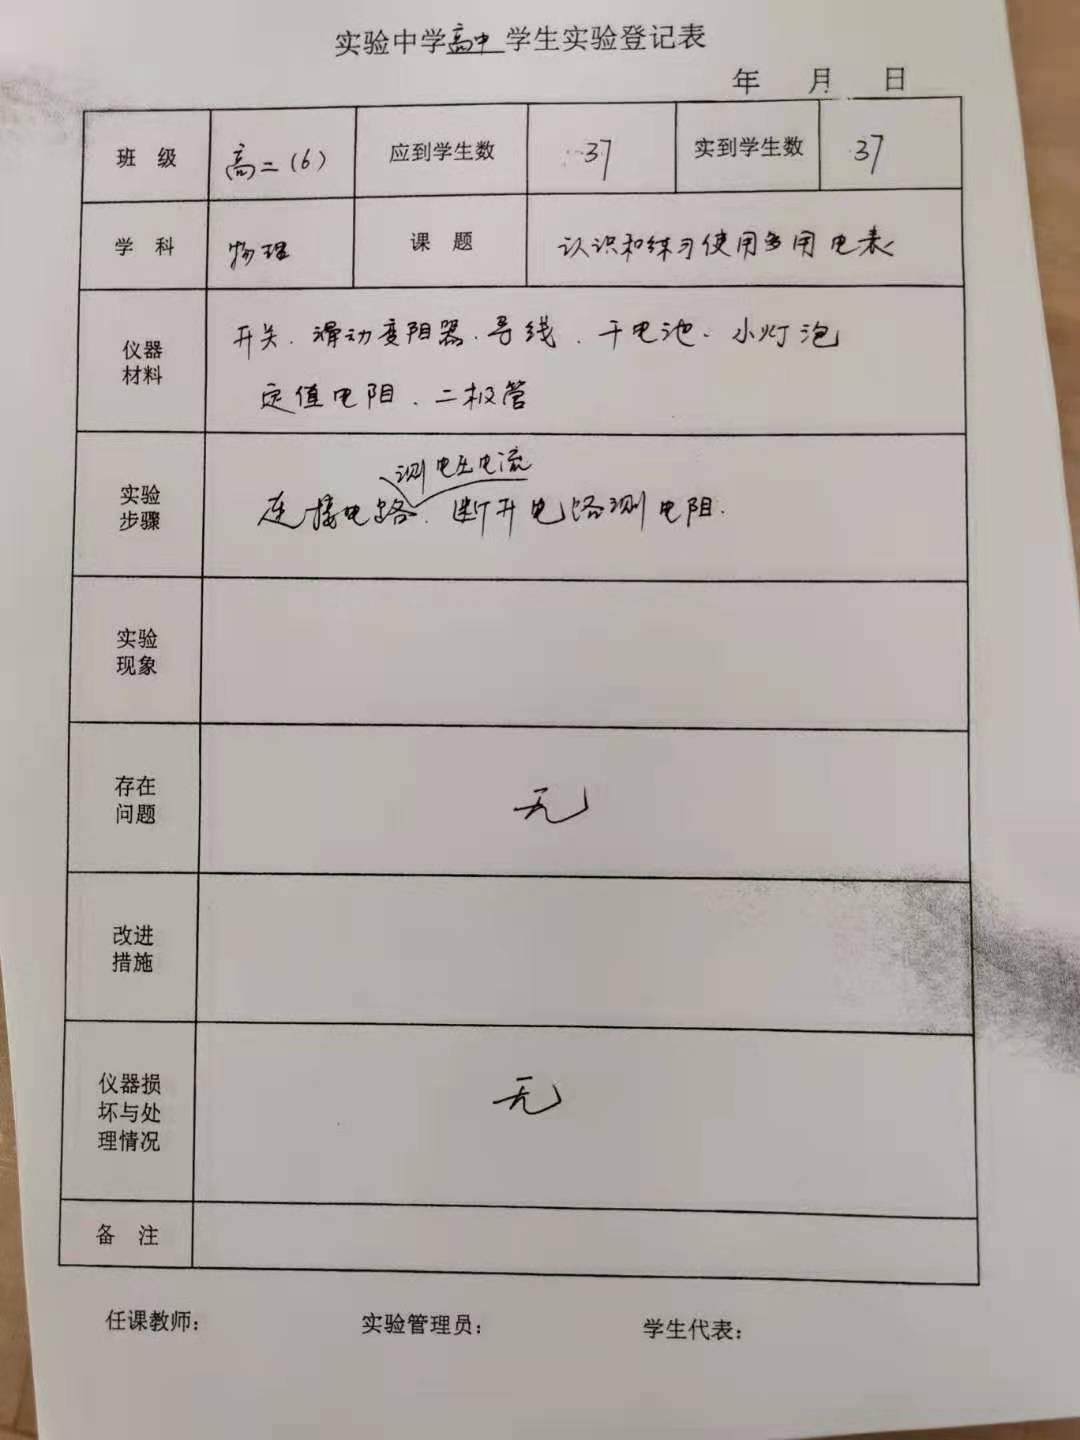 实验中学高中学生实验登记表
年 月 日
班 级 高二(6) 应到学生数 37 实到学生数 37
学 科 物理 课 题 认识和练习使用多用电表
仪器
材料
开关、滑动变阻器、导线、干电池、小灯泡
定值电阻、二极管
实验
步骤
测电压电流
连接电路、断开电路测电阻.
实验
现象
存在
问题
无
改进
措施
仪器损
坏与处
理情况
无
备 注
任课教师: 实验管理员: 学生代表: